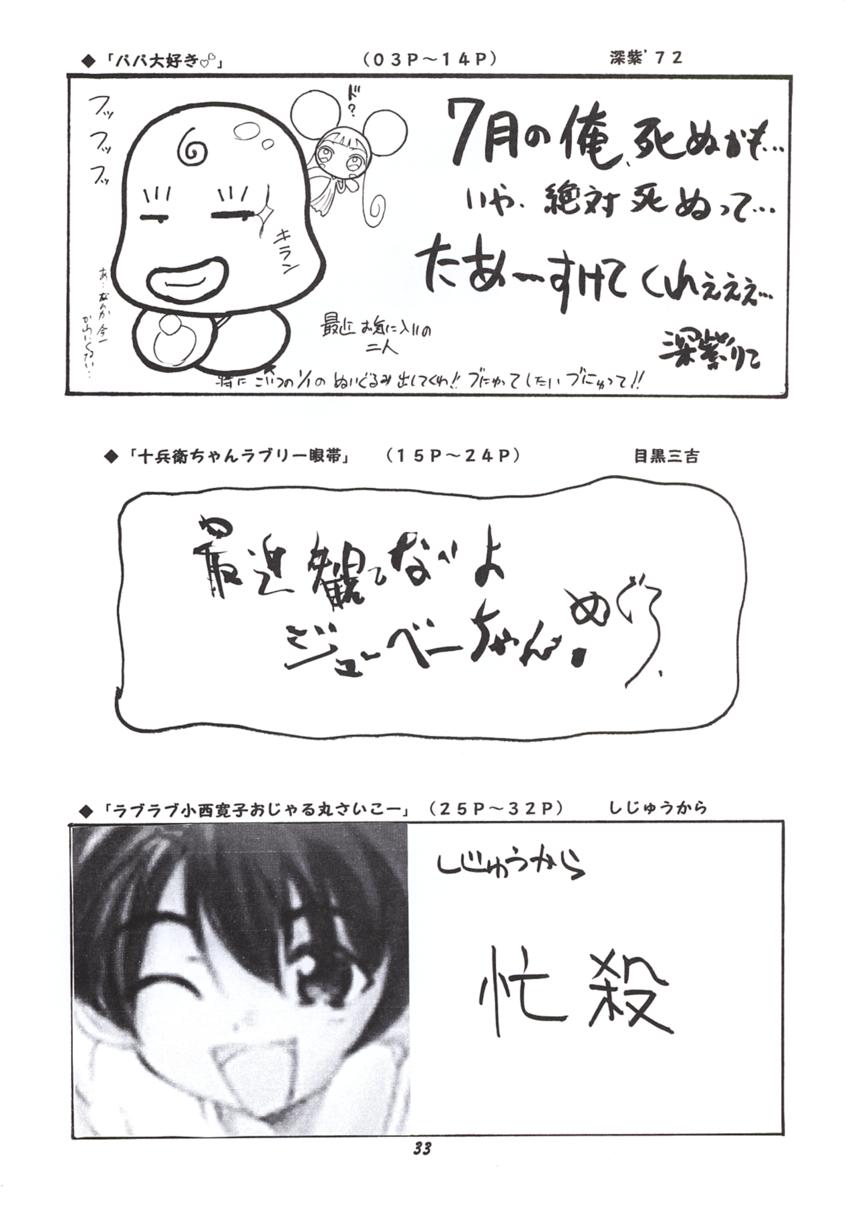 ◆「パパ大好き♡」 (03P～14P) 深紫'72
フッ
フッ
フッ
ド?
キラン
7月の俺、死ぬかも…
いや、絶対死ぬって…
たあーすけてくれぇぇぇ…
深紫りこ
最近お気に入りの
二人
特にこいつの1/1のぬいぐるみ出してくれ!!ブにゅってしたいブにゅって!!
◆「十兵衛ちゃんラブリー眼帯」 (15P～24P) 目黒三吉
最近観てないよ
ジューベーちゃん。めぐろ
◆「ラブラブ小西寛子おじゃる丸さいこー」(25P～32P) しじゅうから
しじゅうから
忙殺
33